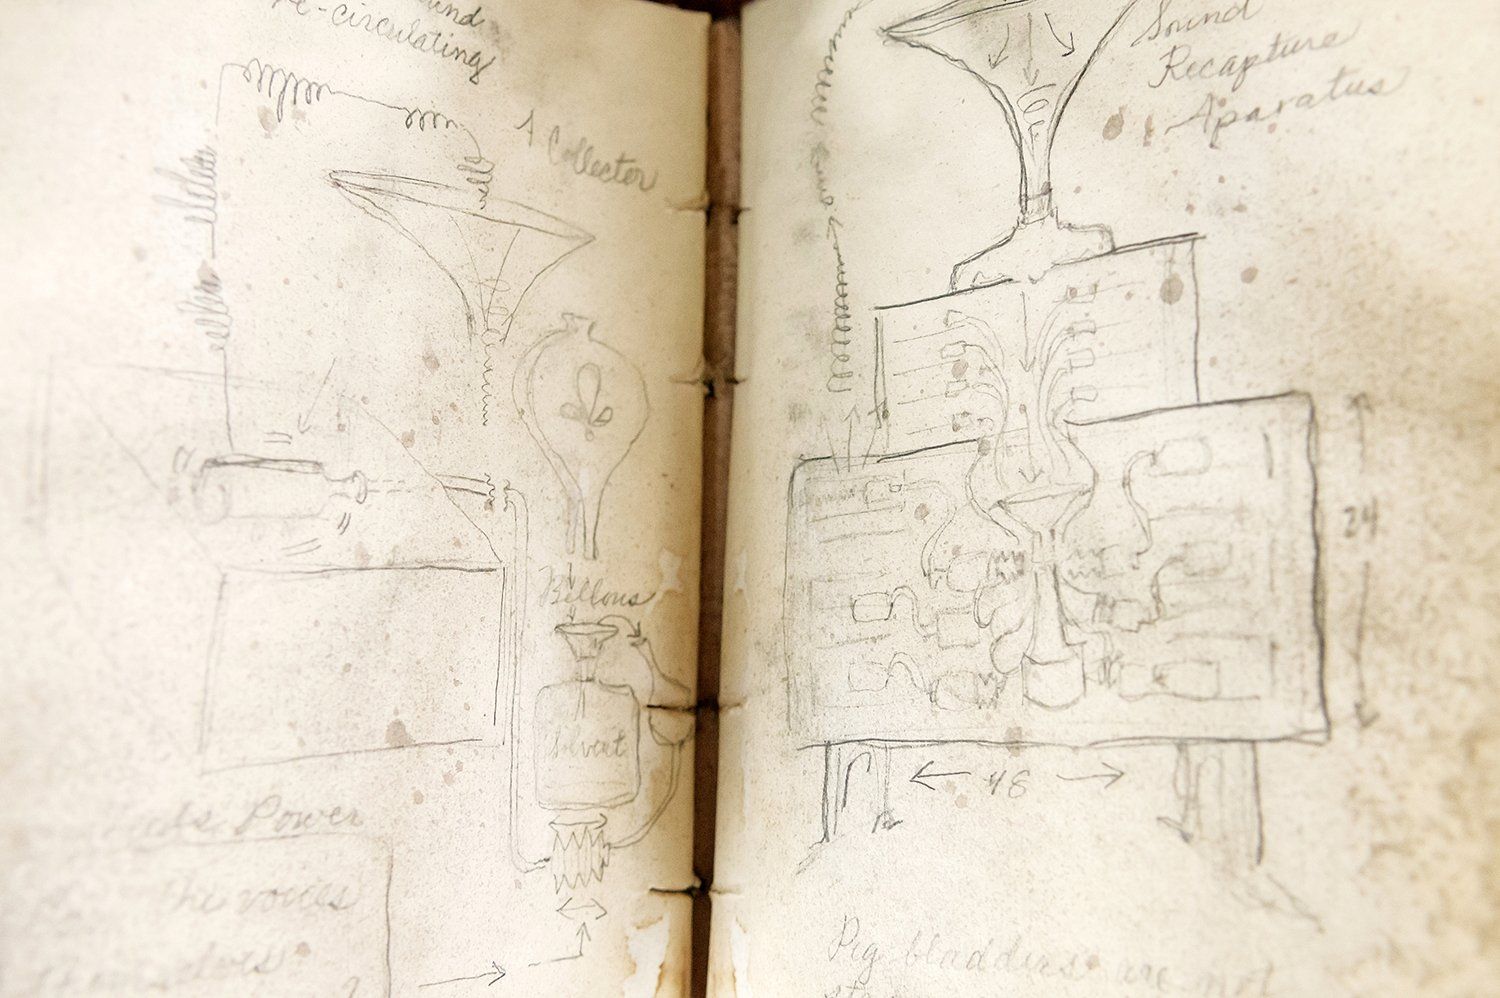 re-circulating
A Collector
Bellows
Solvent
Power
the voices
Sound
Recapture
Aparatus
24
48
Pig bladders are not